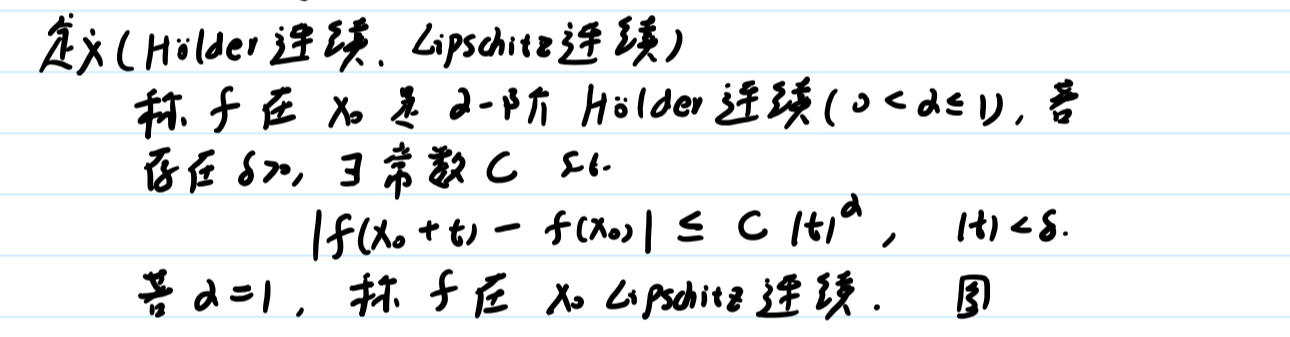 定义(Hölder连续. Lipschitz连续)
称 f 在 x₀ 是 α-阶 Hölder连续(0<α≤1), 若
存在 δ>0, ∃ 常数 C s.t.
|f(x₀+t) - f(x₀)| ≤ C |t|^α, |t|<δ.
若 α=1, 称 f 在 x₀ Lipschitz连续.